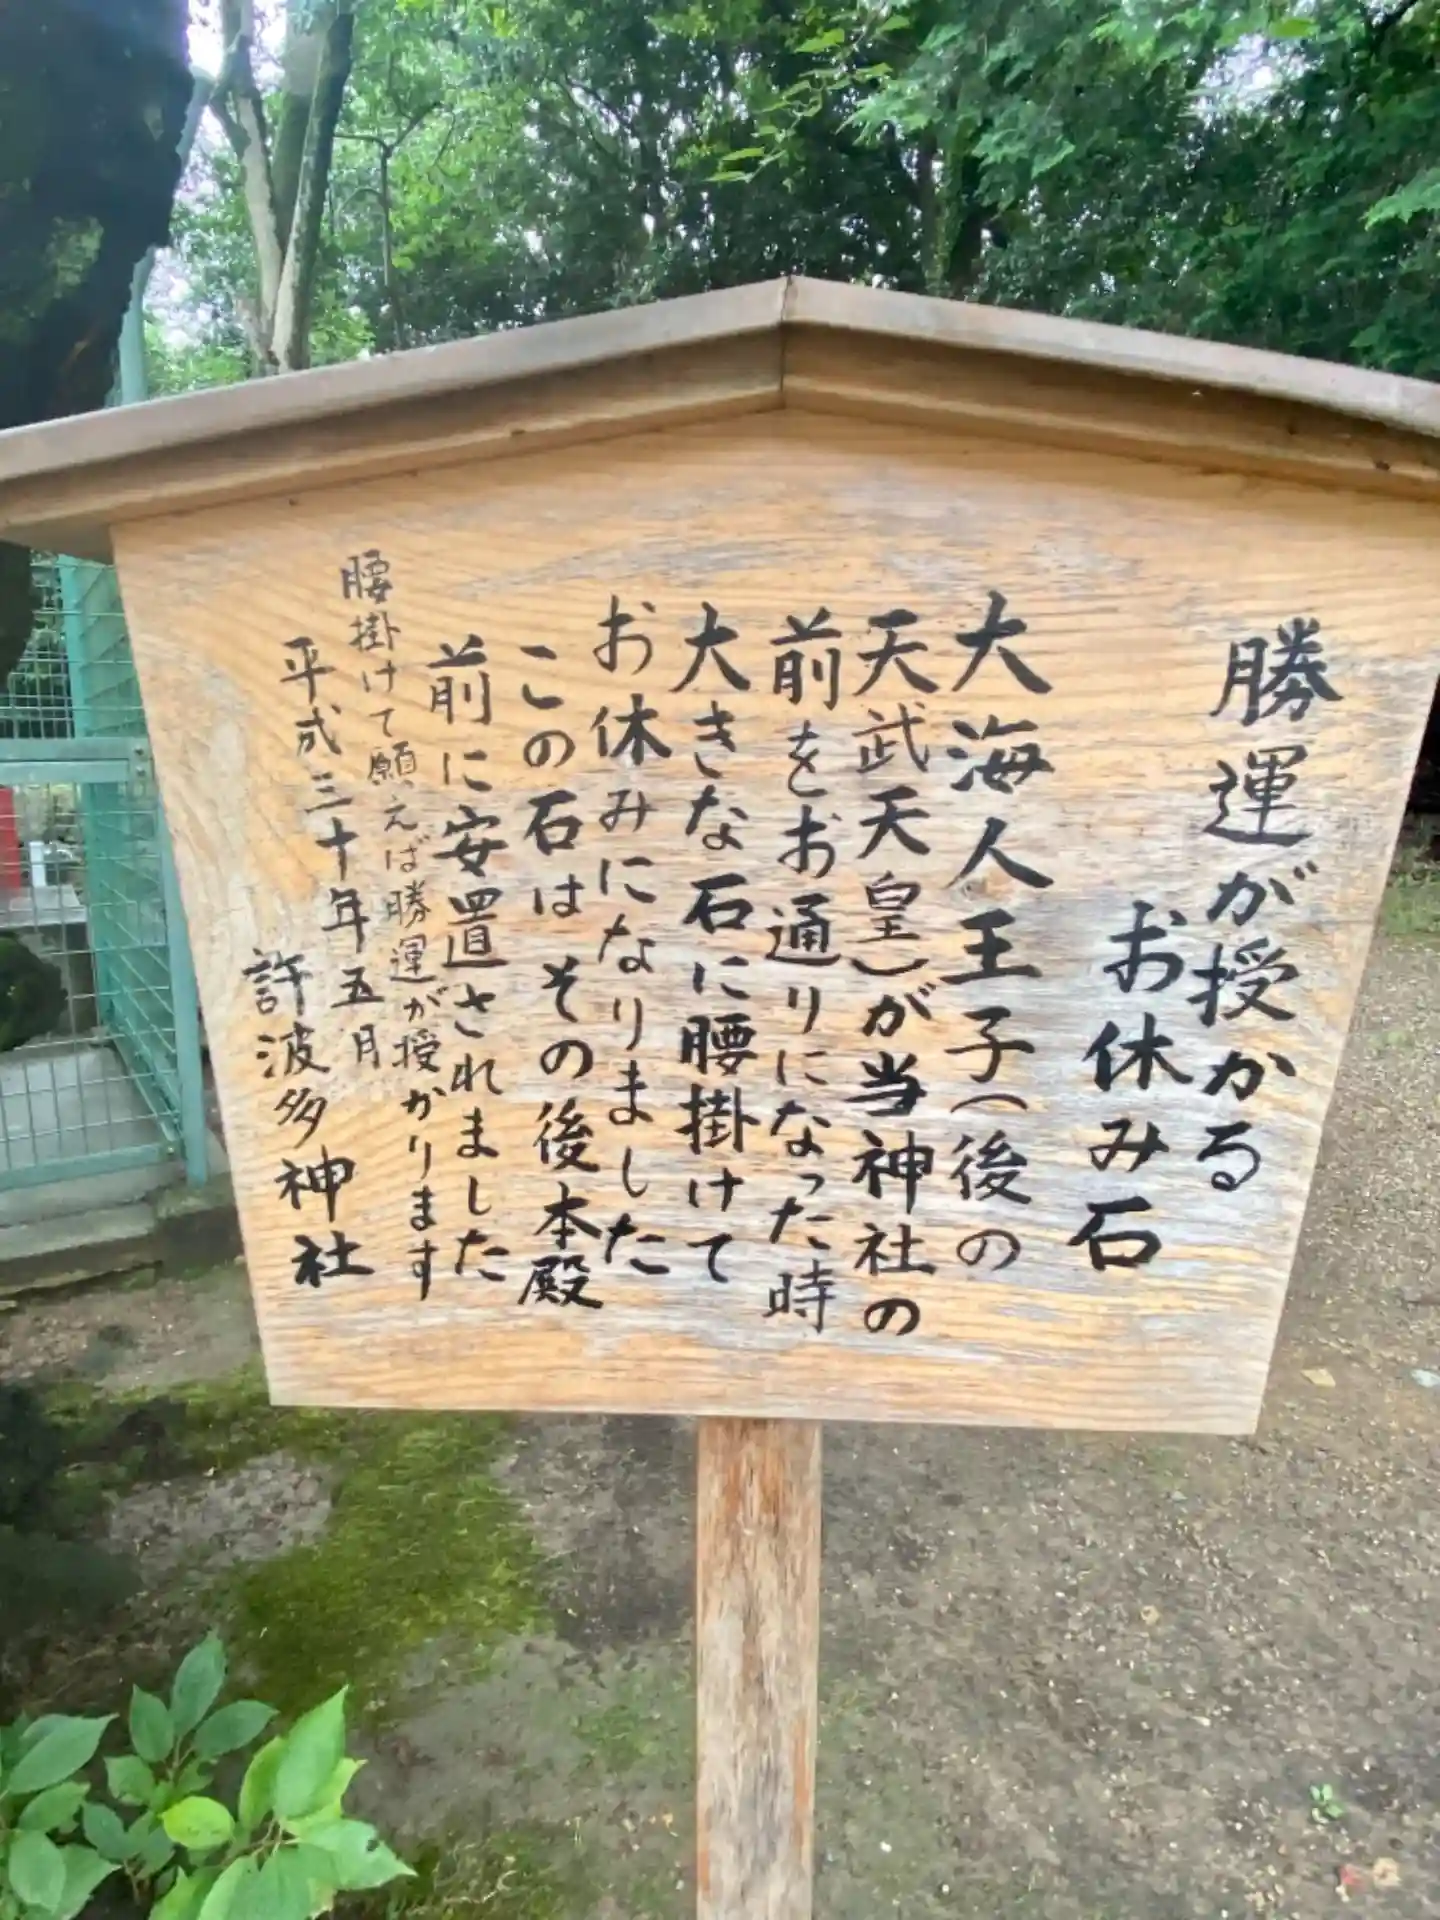 勝運が授かる
お休み石
大海人王子(後の
天武天皇)が当神社の
前をお通りになった時
大きな石に腰掛けて
お休みになりました
この石は その後本殿
前に安置されました
腰掛けて願えば勝運が授かります
平成三十年五月
許波多神社